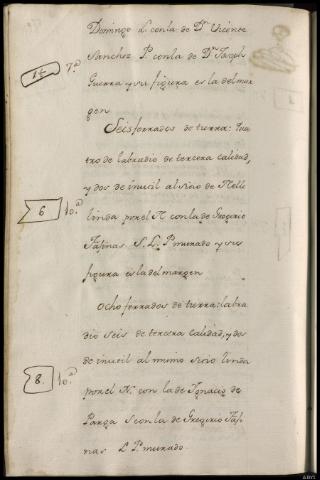 Domingo L con la de Dn Vicente
Sanchez P. con la de Dn Jacob
14 7.a Guerra y su figura es la del mar
gen
Seis ferrados de tierra: qua
tro de labradio de tercera calidad,
y dos de inutil al sitio de Melle
6 10.a linda por el N con la de Gregorio
Fasinas. S. L. P murado y su
figura es la del margen
Ocho ferrados de tierra: labra
dio seis de tercera calidad, y dos
de inutil al mismo sitio linda
8. 10.a por el N. con la de Ignacio de
Parga S con la de Gregorio Fasi
nas L P. murado